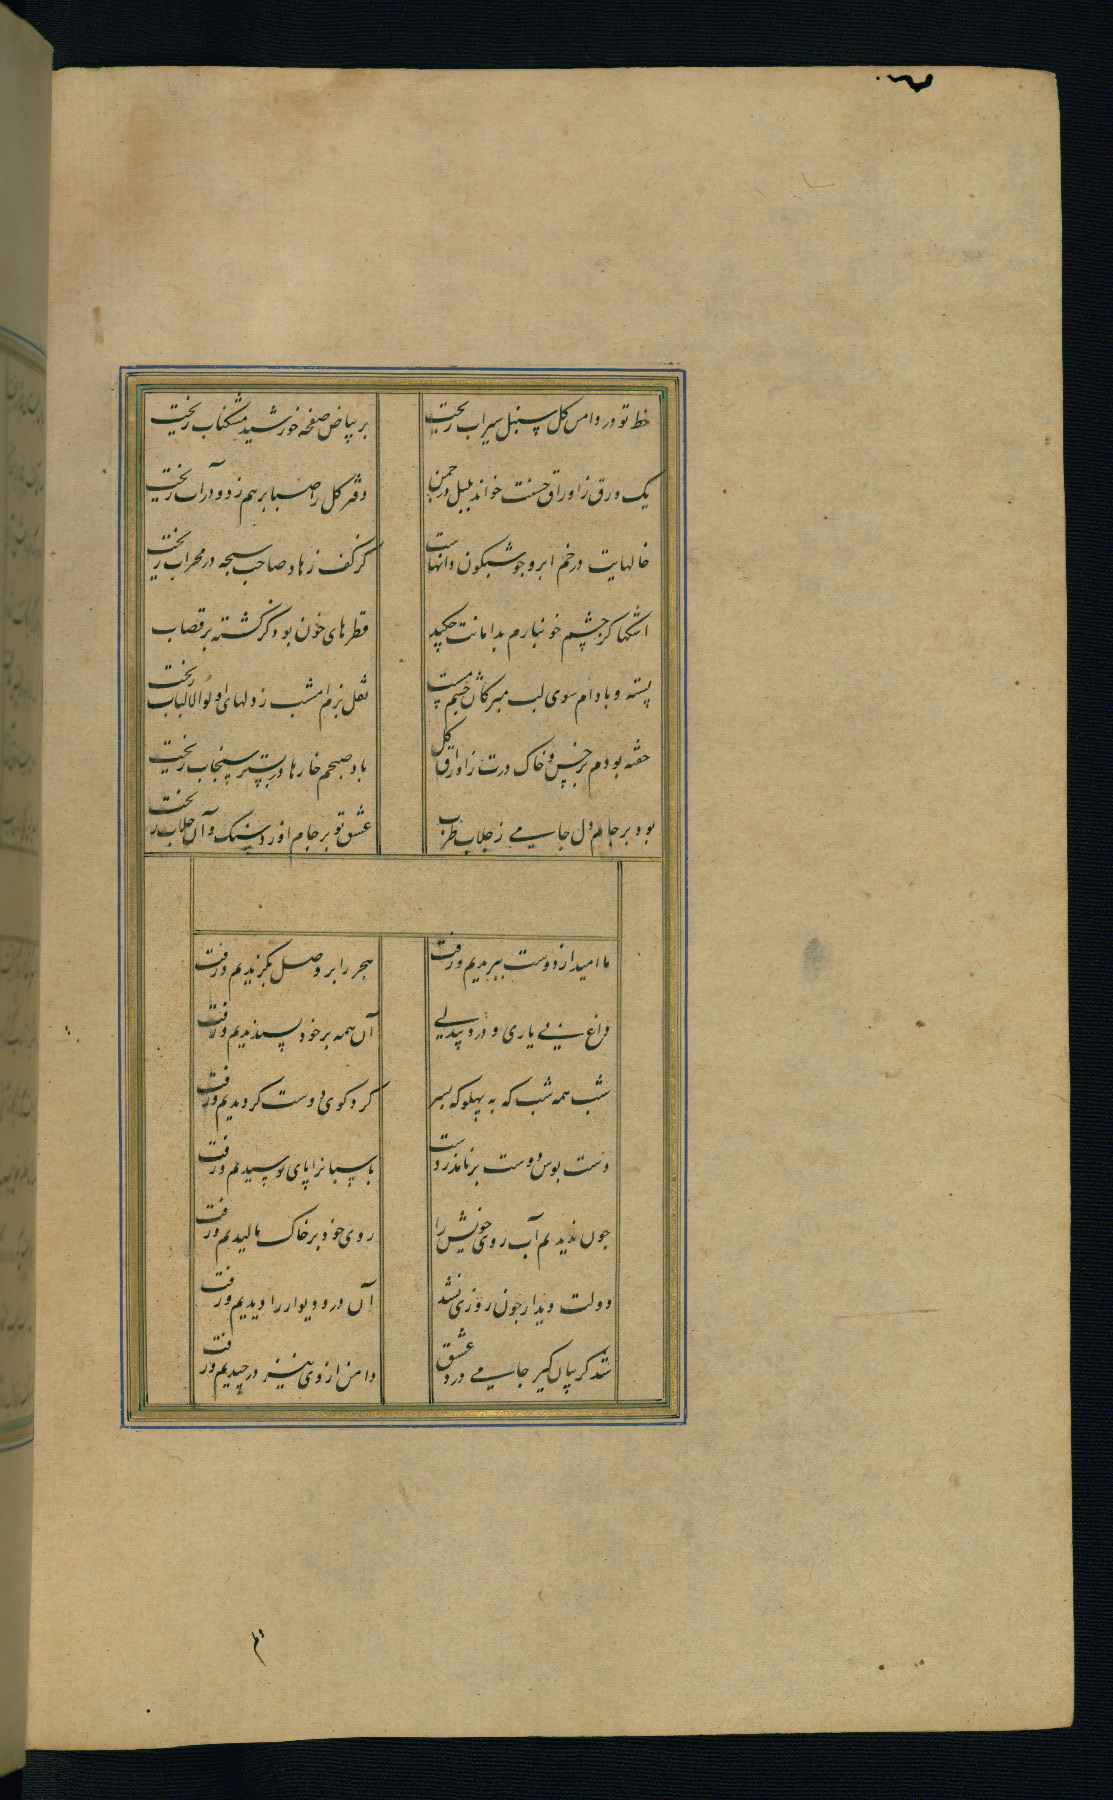 خط تو در دامن کل سنبل سیراب ریخت
بر بیاض صفحه خورشید مشکناب ریخت
یک ورق ز اوراق حسنت خواند بلبل در چمن
دفتر کل را صبا برهم زد و در آب ریخت
خالهایت در خم ابرو چو شبکون دانهاست
کز کف زهاد صاحب سبحه در محراب ریخت
اشکها کز چشم خونبارم بدامانت چکید
قطرهای خون بود کز کشته بر قصاب
پسته و بادام سوی لب مبر کان چشم مست
نقل بزم امشب ز دلهای اولوالالباب ریخت
خفته بودم بر خس و خاک درت ز اوراق کل
باد صبحم خارها در بستر سنجاب ریخت
بود بر جام دل جامی ز جلاب طرب
عشق تو بر جام او زد سنک و آن جلاب ریخت
ما امید از دوست ببریدیم و رفت
هجر را بر وصل بکزیدیم و رفت
داغ بی یاری و درد بیدلی
آن همه بر خود پسندیدیم و رفت
شب همه شب که به پهلو که بسر
کرد کوی دوست کردیدیم و رفت
دست بوس دوست برنامد ز دست
پاسبانرا پای بوسیدیم و رفت
چون ندیدیم آب روی خویش را
روی خود بر خاک مالیدیم و رفت
دولت دیدار چون روزی نشد
آن در و دیوار را دیدیم و رفت
شد کریبان کیر جامی درد عشق
دامن از وی نیز درچیدیم و رفت